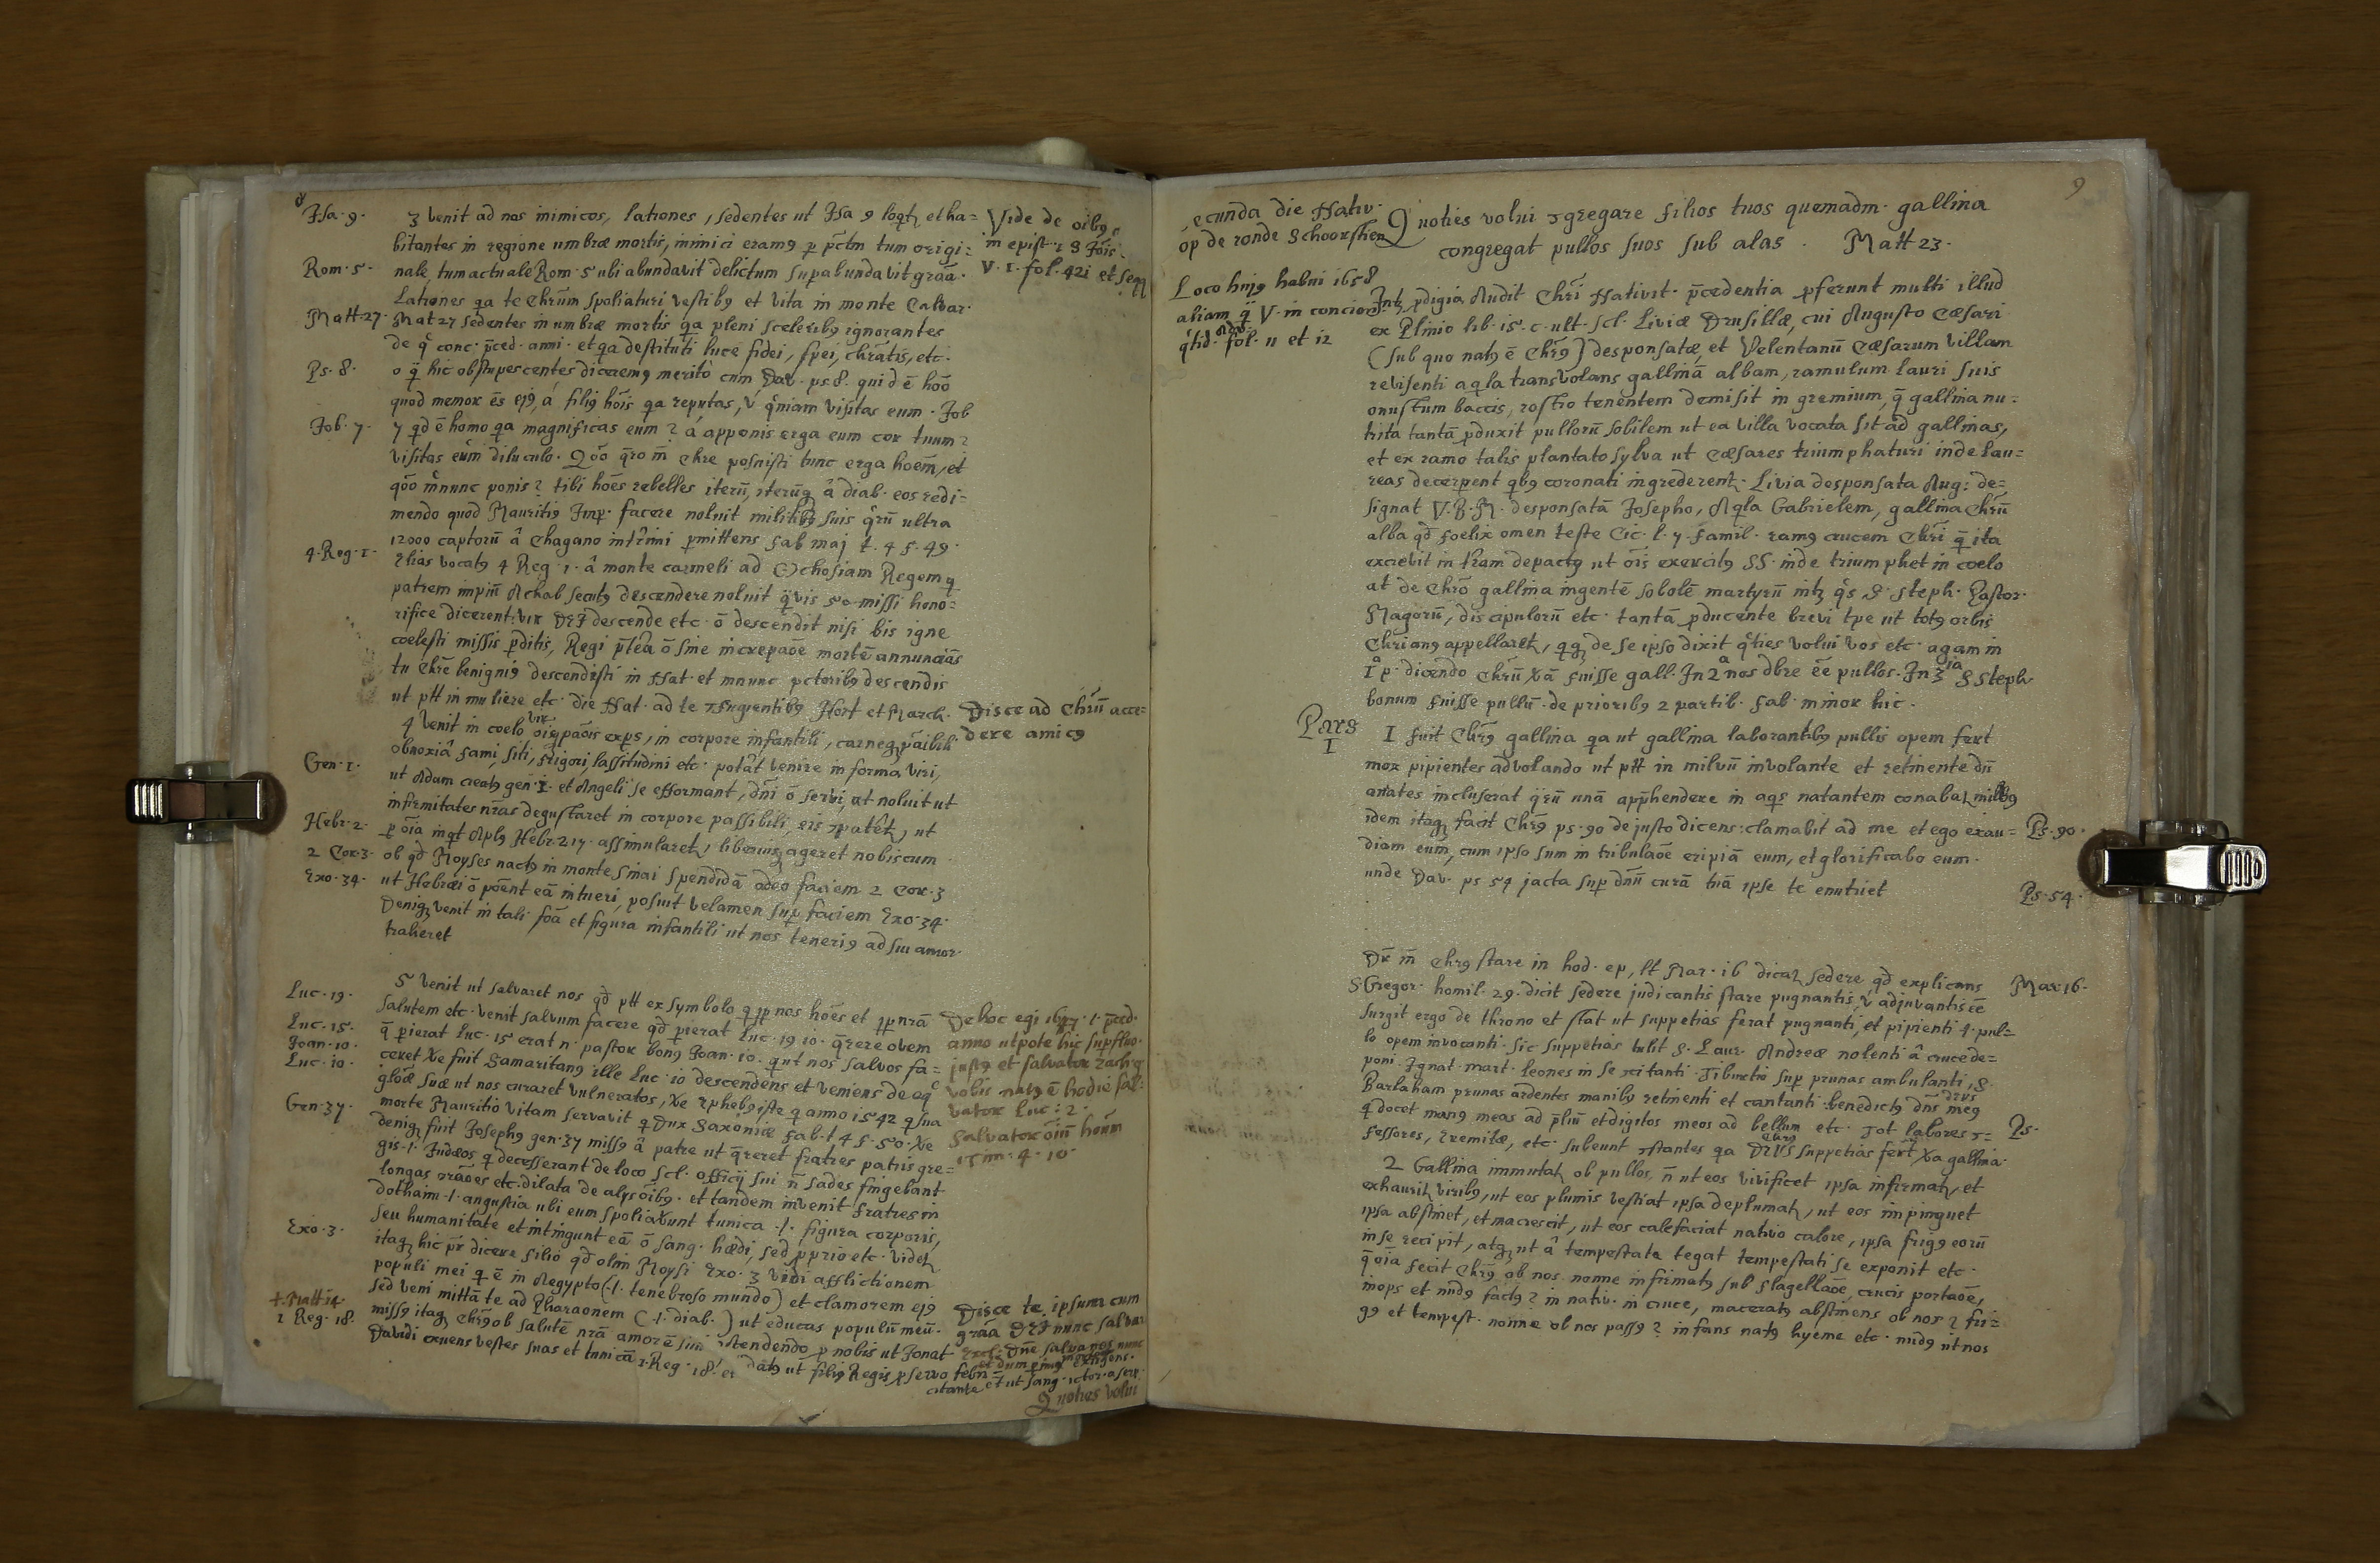 8
Isa · 9 ·
3 venit ad nos inimicos, latrones, sedentes ut Isa 9 loqt̄ et ha=
bitantes in regione umbræ mortis, inimici eram9 p pc̄tm tum origi=
Rom · 5 ·
nale, tum actuale Rom · 5 ubi abundavit delictum supabundavit grāa ·
Latrones qa te Chrūm spoliaturi vestib9 et vita in monte Calvar ·
Matt · 27 ·
Mat 27 sedentes in umbræ mortis qa pleni scelerib9 ignorantes
de q conc · p̄ced · anni · et qa destituti luce fidei, spei, chrātis, etc ·
Ps · 8 ·
o q̄ hic obstupescentes dicerem9 merito cum Dav · ps 8 · quid ē hōo
quod memor ēs ej9, a fili9 hōis qa reputas, v̄ qniam visitas eum · Job
Job · 7 ·
7 qd ē homo qa magnificas eum ? a apponis erga eum cor tuum ?
visitas eūm diluculo · Qōo q̄ro m̄ Chre posuisti tunc erga hoēm, et
qōo m̄nunc ponis ? tibi hōes rebelles iterū, iterūq â diab · eos redi=
mendo quod Mauriti9 Imp · facere noluit militib9 suis qrū ultra
12000 captorū â Chagano intrimi pmittens fab maj t · 4 f · 49 ·
4 · Reg · 1 ·
Elias vocat9 4 Reg · 1 · â monte carmeli ad Ochosiam Regem q
patrem impiū Achab secut9 descendere noluit q̄vis 50 missi hono=
rifice dicerent: vir DEI descende etc · ō descendit nisi bis igne
coelesti missis pditis, Regi p̄tea ō sine increpaōe mortē annuncās
tu Chrē benigni9 descendisti in Nat · et m̄nunc pctorib9 descendis
ut ptt in muliere etc · die Nat · ad te ꝯfugientib9 Hort et March ·
Disce ad Chrū acce=
dere amic9
4 venit in coelo vir ois9 pāois exp̄s, in corpore infantili, carneq, pāibili
obnoxiâ fami, siti, frigori, lassitudini etc · potât venire in forma viri,
Gen · 1 ·
ut Adam creat9 gen · 1 · et Angeli se efformant, dn̄i ō servi at noluit ut
infirmitates nrās degustaret in corpore passibili, eis ꝯpatet, ut
Hebr · 2 ·
p ōia inqt Apls Hebr · 2 17 · assimularet, liberius ageret nobiscum
2 Cor · 3 ·
ob qd Moyses nact9 in monte Sinai spendidā adeo faciem 2 Cor · 3
Exo · 34 ·
ut Hebræi ō pōent eā intueri, posuit velamen sup faciem Exo · 34 ·
Deniq venit in tali foā et figura infantili ut nos teneri9 ad sui amor
traheret
5 venit ut salvaret nos qd ptt ex symbolo q pp nos hōes et pp nrā
Luc · 19 ·
salutem etc · venit salvum facere qd pierat Luc · 19 10 · q̄rere ovem
Luc · 15 ·
q̄ pierat Luc · 15 erat n · pastor bon9 Joan · 10 · qut nos salvos fa=
Joan · 10 ·
Luc · 10 ·
ceret Xe fuit Samaritan9 ille Luc · 10 descendens et veniens de
glōæ suæ ut nos curaret vulneratos, Xe Epheb9 iste q anno 1542 q sua
morte Mauritio vitam servavit q Dux Saxoniæ fab · t 4 f · 50 · Xe
Gen · 37 ·
deniq fuit Joseph9 gen · 37 miss9 â patre ut q̄reret fratres patris gre=
gis · 1 · Judæos q decesserant de loco scl · officij sui n̄ sades fingebant
longas orāoes etc · dilata de alys ōib9 · et tandem invenit fratres in
dothaim · 1 · angustia ubi eum spoliabunt tunica · 1 · figura corporis,
seu humanitate et intingunt eā ō sang · hædi, sed p̄prio etc · videt
Exo · 3 ·
itaq hic pr̄ dicere filio qd olim Moysi Exo · 3 vidi afflictionem
populi mei q ē in Aegypto (· 1 · tenebroso mundo) et clamorem ej9
sed veni mittā te ad Pharaonem (· 1 · diab · ) ut educas populū meū ·
+ · Matt 14 ·
miss9 itaq Chr9 ob salutē nrā amorē sui ostendendo p nobis ut Jonat
1 Reg · 18 ·
Davidi exuens vestes suas et tunicā 1 · Reg · 18 · dat9 ut fili9 Regis p servo
Vide de oib9
in epist · 1 S Jōis ·
V · 1 · fol · 421 et seqq
De hoc egi 1657 · 1 · p̄ced ·
anno utpote hic supfluo ·
just9 et salvator zach · 9
vobis nat9 ē hodie sal=
vator Luc : 2 ·
Salvator ōiū hoūm
1 Tim · 4 · 10 ·
Disce te ipsum cum
grāa DEI nunc salvar
Excl: Dn̄e salva nos
Quoties volui
9
ecunda die Nativ ·
op de ronde Schoorstien
Quoties volui ꝯgregare filios tuos quemadm · gallina
congregat pullos suos sub alas · Matt 23 ·
Loco huj9 habui 1658
aliam q̄ V · in concion ·
qtid · Adv · fol · 11 et 12
Int9 pdigia Audit Chrī Nativit · p̄cedentia pferunt multi illud
ex Plinio lib · 15 · c · ult · scl · Liviæ Drusillæ, cui Augusto Cæsari
(sub quo nat9 ē Chr9) desponsatæ, et Velentanū Cæsarum villam
revisenti aqla transvolans gallinā albam, ramulum lauri suis
onustum baccis, rostro tenentem demisit in gremium, q̄ gallina nu=
trita tantā pduxit pullorū sobilem ut ea villa vocata sit ad gallinas,
et ex ramo talis plantato sylva ut Cæsares triumphaturi inde lau=
reas decerpent qb9 coronati ingrederent · Livia desponsata Aug: de=
signat V · B · M · desponsatā Josepho, Aqla Gabrielem, gallina Chrū
alba qd foelix omen teste Cic · l · 7 · famil · ram9 crucem Chrī q̄ ita
excrevit in trām depact9 ut ōis exercit9 SS · inde triumphet in coelo
at de Chrō gallina ingentē sobolē martyrū int9 qs S · Steph · Pastor ·
Magorū, discipulorū etc · tantā pducente brevi tpe ut tot9 orbis
Chrian9 appellaret, qq de se ipso dixit qties volui vos etc · agam in
1ª p · dicendo Chrū Xā fuisse gall · In 2ª nos dbre ēe pullos · In 3ia S Steph ·
bonum fuisse pullū · de priorib9 2 partib · fab · minor hic ·
Pars
I
1 fuit Chr9 gallina qa ut gallina laborantib9 pullis opem fert
mox pipientes advolando ut ptt in milvū involante et retinente dū
anates incluserat qrū unā apphendere in aqs natantem conabat milv9
Ps · 90 ·
idem itaq facit Chr9 ps · 90 de justo dicens: clamabit ad me et ego exau=
diam eum, cum ipso sum in tribulaōe eripiā eum, et glorificabo eum ·
Ps · 54 ·
unde Dav · ps 54 jacta sup dn̄ū curā tuā ipse te enutriet
Dr̄ m̄ Chr9 stare in hod · ep, lt Mar · 16 dicat sedere qd explicans
Mar 16 ·
S Gregor · homil · 29 · dicit sedere judicantis stare pugnantis, v̄ adjuvantis ēe
surgit ergo de throno et stat ut suppetias ferat pugnanti, et pipienti q · pul=
lo opem invocanti · Sic suppetias tulit S · Laur · Andreæ nolenti â cruce de=
poni · Ignat · mart · leones in se ꝯcitanti · Tiburtio sup prunas ambulanti, S ·
Barlaham prunas ardentes manib9 retinenti et cantanti: benedict9 dn̄s DEVS me9
q docet man9 meas ad p̄liū et digitos meos ad bellum etc · Tot labores ꝯ=
Ps ·
fessores, Eremitæ, etc · subeunt ꝯstantes qa Chr9 DEUS suppetias fert Xa gallina ·
2 Gallina immutat ob pullos, n̄ ut eos vivificet ipsa infirmat, et
exhaurit virib9, ut eos plumis vestiat ipsa deplumat, ut eos impinguet
ipsa abstinet, et macrescit, ut eos calefaciat nativo calore, ipsa frig9 eorū
in se recipit, atq ut â tempestate tegat tempestati se exponit etc ·
q̄ oīa fecit Chr9 ob nos nonne infirmat9 sub flagellaōe, crucis portaōe,
inops et nud9 fact9 ? in nativ · in cruce, macerat9 abstinens ob nos ? fri=
g9 et tempest · nonne ob nos pass9 ? infans nat9 hyeme etc · nud9 ut nos